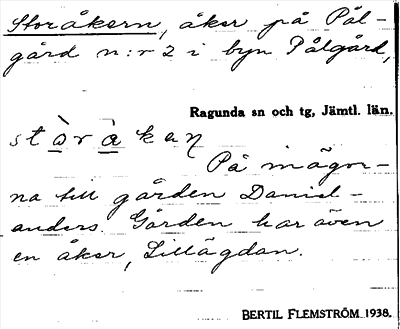 Storåkern, åker på Pål-
gård n:r 2 i byn Pålgård,
Ragunda sn och tg, Jämtl. län.
På inägor-
na till gården Daniel-
anders. Gården har även
en åker, Lillägdan.
BERTIL FLEMSTRÖM 1938.